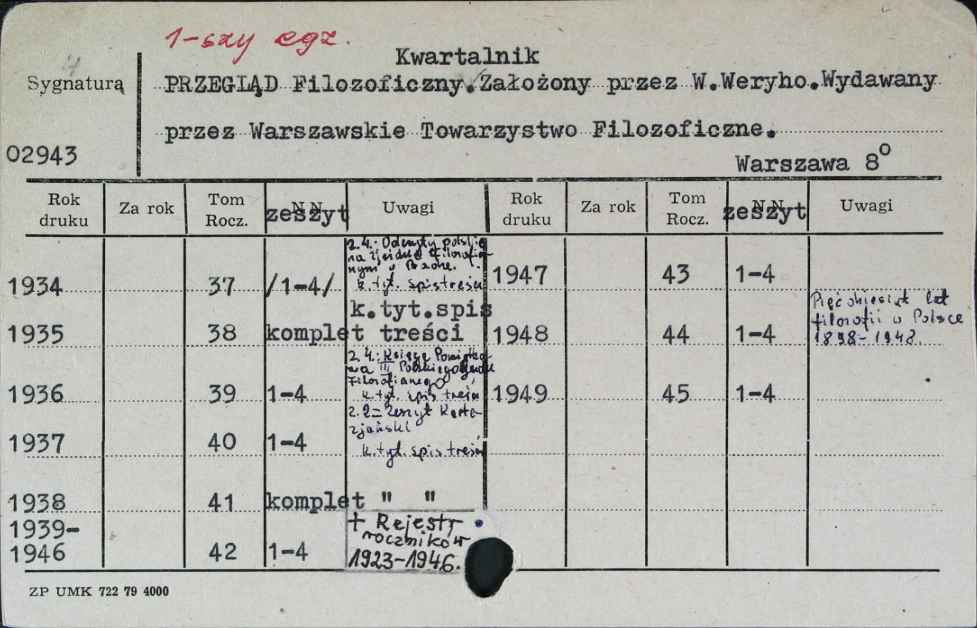 1-szy egz.
Kwartalnik
Sygnatura PRZEGLĄD Filozoficzny. Założony przez W.Weryho.Wydawany
przez Warszawskie Towarzystwo Filozoficzne.
02943 Warszawa 8°
Rok druku Za rok Tom Rocz. zeszyt Uwagi Rok druku Za rok Tom Rocz. zeszyt Uwagi
z 4: Odczyty polskie
na zjeździe filozofi-
nym w
k. tyt. spis treści
1934 37 /1-4/ 1947 43 1-4
k.tyt.spis
1935 38 komplet treści 1948 44 1-4
Pięćdziesiąt lat
filozofii w Polsce
1898-1948
z 4: Księga Pamiątko-
wa III Polskiego Zjazdu
Filozoficznego
k. tyt. spis treści
1936 39 1-4 1949 45 1-4
z. 2= Zeszyt Karte-
zjański
k. tyt. spis treści
1937 40 1-4
1938 41 komplet " "
1939-
1946 42 1-4
+ Rejestr
roczników
1923-1946.
ZP UMK 722 79 4000